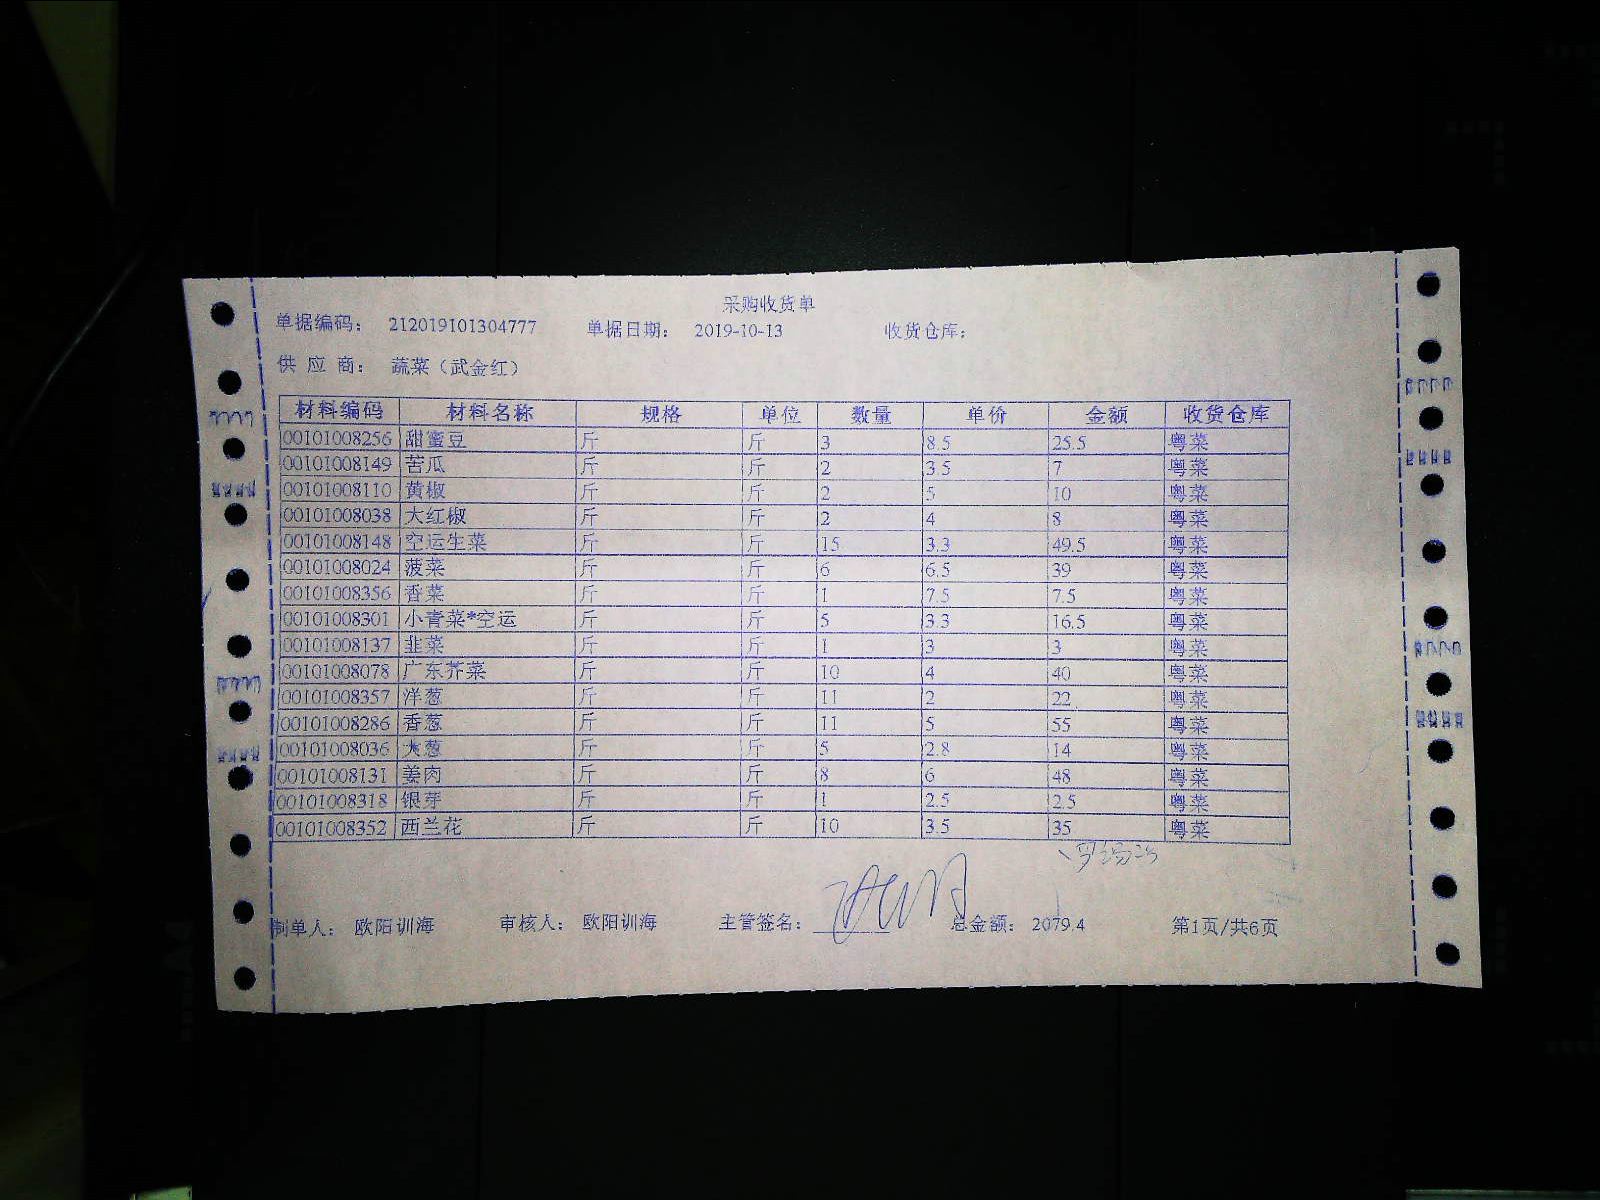 采购收货单
单据编码： 212019101304777 单据日期： 2019-10-13 收货仓库：
供 应 商： 蔬菜（武金红）
材料编码 材料名称 规格 单位 数量 单价 金额 收货仓库
00101008256 甜蜜豆 斤 斤 3 8.5 25.5 粤菜
00101008149 苦瓜 斤 斤 2 3.5 7 粤菜
00101008110 黄椒 斤 斤 2 5 10 粤菜
00101008038 大红椒 斤 斤 2 4 8 粤菜
00101008148 空运生菜 斤 斤 15 3.3 49.5 粤菜
00101008024 菠菜 斤 斤 6 6.5 39 粤菜
00101008356 香菜 斤 斤 1 7.5 7.5 粤菜
00101008301 小青菜*空运 斤 斤 5 3.3 16.5 粤菜
00101008137 韭菜 斤 斤 1 3 3 粤菜
00101008078 广东芥菜 斤 斤 10 4 40 粤菜
00101008357 洋葱 斤 斤 11 2 22 粤菜
00101008286 香葱 斤 斤 11 5 55 粤菜
00101008036 大葱 斤 斤 5 2.8 14 粤菜
00101008131 姜肉 斤 斤 8 6 48 粤菜
00101008318 银芽 斤 斤 1 2.5 2.5 粤菜
00101008352 西兰花 斤 斤 10 3.5 35 粤菜
制单人： 欧阳训海 审核人： 欧阳训海 主管签名： 总金额： 2079.4 第1页/共6页